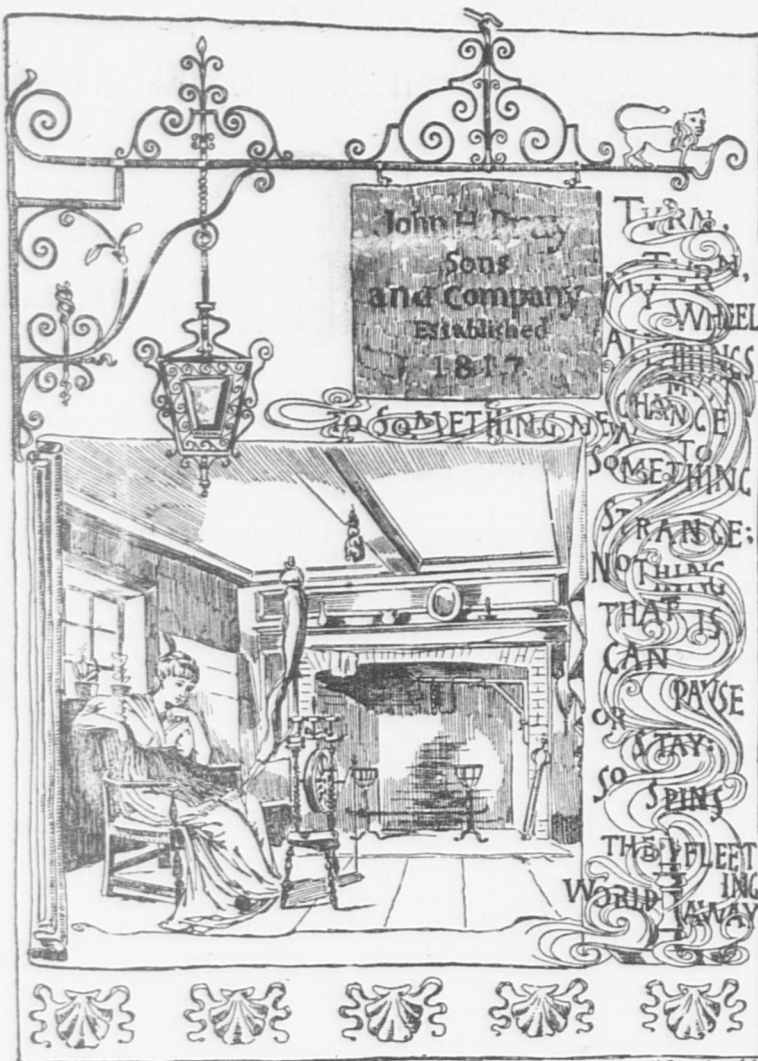 John H. Pray
Sons
and Company
Established
1817
TVRN,
TVRN,
MY WHEEL
ALL THINGS
MVST
CHANGE
TO SOMETHING NEW
TO
SOMETHING
STRANGE;
NOTHING
THAT IS
CAN
PAVSE
OR
STAY:
SO SPINS
THE FLEET
ING
WORLD AWAY